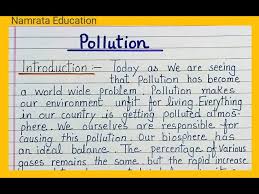 Namrata Education
Pollution
Introduction :- Today as we are seeing
that Pollution has become
a world wide problem. Pollution makes
our environment unfit for living. Everything
in our country is getting polluted atmos-
phere. We ourselves are responsible for
causing this pollution. Our biosphere has
an ideal balance. The percentage of various
gases remains the same. but the rapid increase